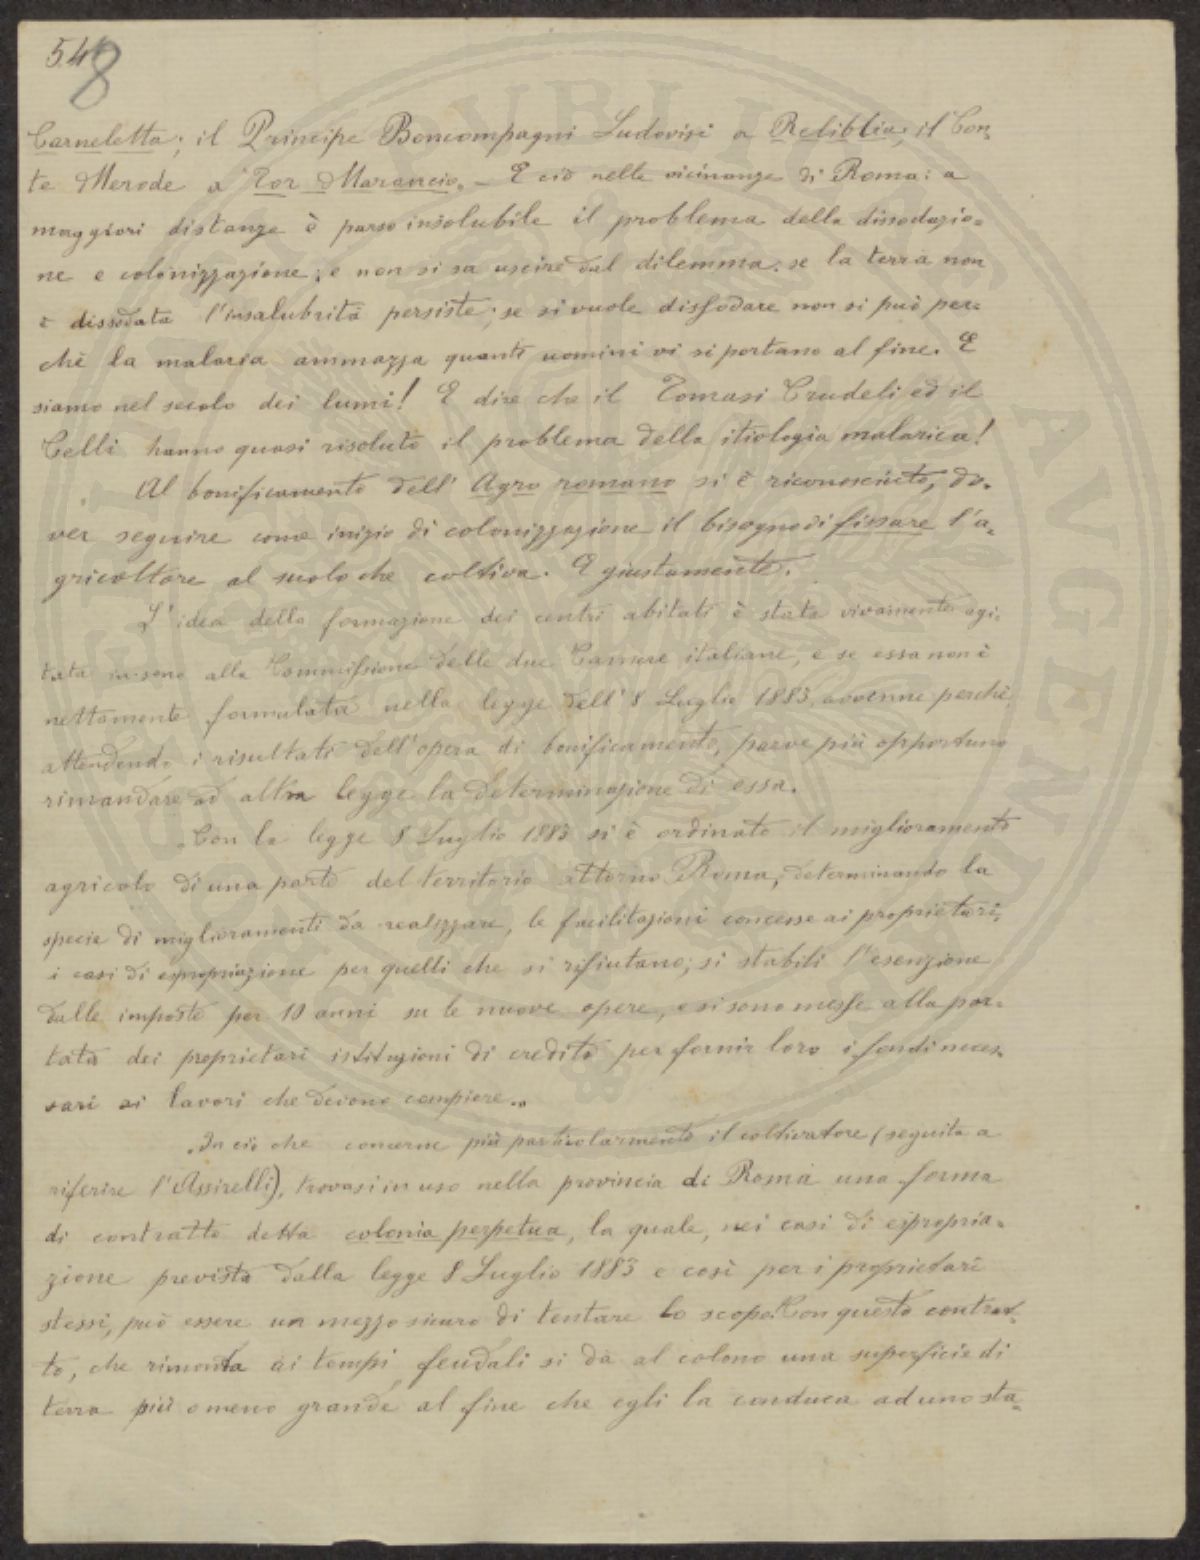 548
Carneletta; il Principe Boncompagni Ludovisi a Rebibbia; il Con-
te Merode a Tor Marancio. — E ciò nelle vicinanze di Roma: a
maggiori distanze è parso insolubile il problema della dissodazio-
ne e colonizzazione; e non si sa uscire dal dilemma: se la terra non
è dissodata l'insalubrità persiste; se si vuole dissodare non si può per-
chè la malaria ammazza quanti uomini vi si portano al fine. E
siamo nel secolo dei lumi! E dire che il Tomasi Crudeli ed il
Celli hanno quasi risoluto il problema della itiologia malarica!
Al bonificamento dell' Agro romano si è riconosciuto, do-
ver seguire come inizio di colonizzazione il bisogno di fissare l'a-
gricoltore al suolo che coltiva. E giustamente.
L' idea della formazione dei centri abitati è stata vivamente agi-
tata in seno alla Commissione delle due Camere italiane, e se essa non è
nettamente formulata nella legge dell' 8 Luglio 1883, avvenne perchè
attendendo i risultati dell'opera di bonificamento, parve più opportuno
rimandare ad altra legge la determinazione di essa.
Con la legge 8 Luglio 1883 si è ordinato il miglioramento
agricolo di una parte del territorio attorno Roma, determinando la
specie di miglioramenti da realizzare, le facilitazioni concesse ai proprietari,
i casi di espropriazione per quelli che si rifiutano; si stabilì l'esenzione
dalle imposte per 10 anni su le nuove opere, e si sono messe alla por-
tata dei proprietari istituzioni di credito per fornir loro i fondi neces-
sari ai lavori che devono compiere..
In ciò che concerne più particolarmente il coltivatore (seguita a
riferire l'Assirelli), trovasi in uso nella provincia di Roma una forma
di contratto detta colonia perpetua, la quale, nei casi di espropria-
zione prevista dalla legge 8 Luglio 1883 e così per i proprietari
stessi, può essere un mezzo sicuro di tentare lo scopo. Con questo contrat-
to, che rimonta ai tempi feudali si dà al colono una superficie di
terra più o meno grande al fine che egli la conduca ad uno sta-